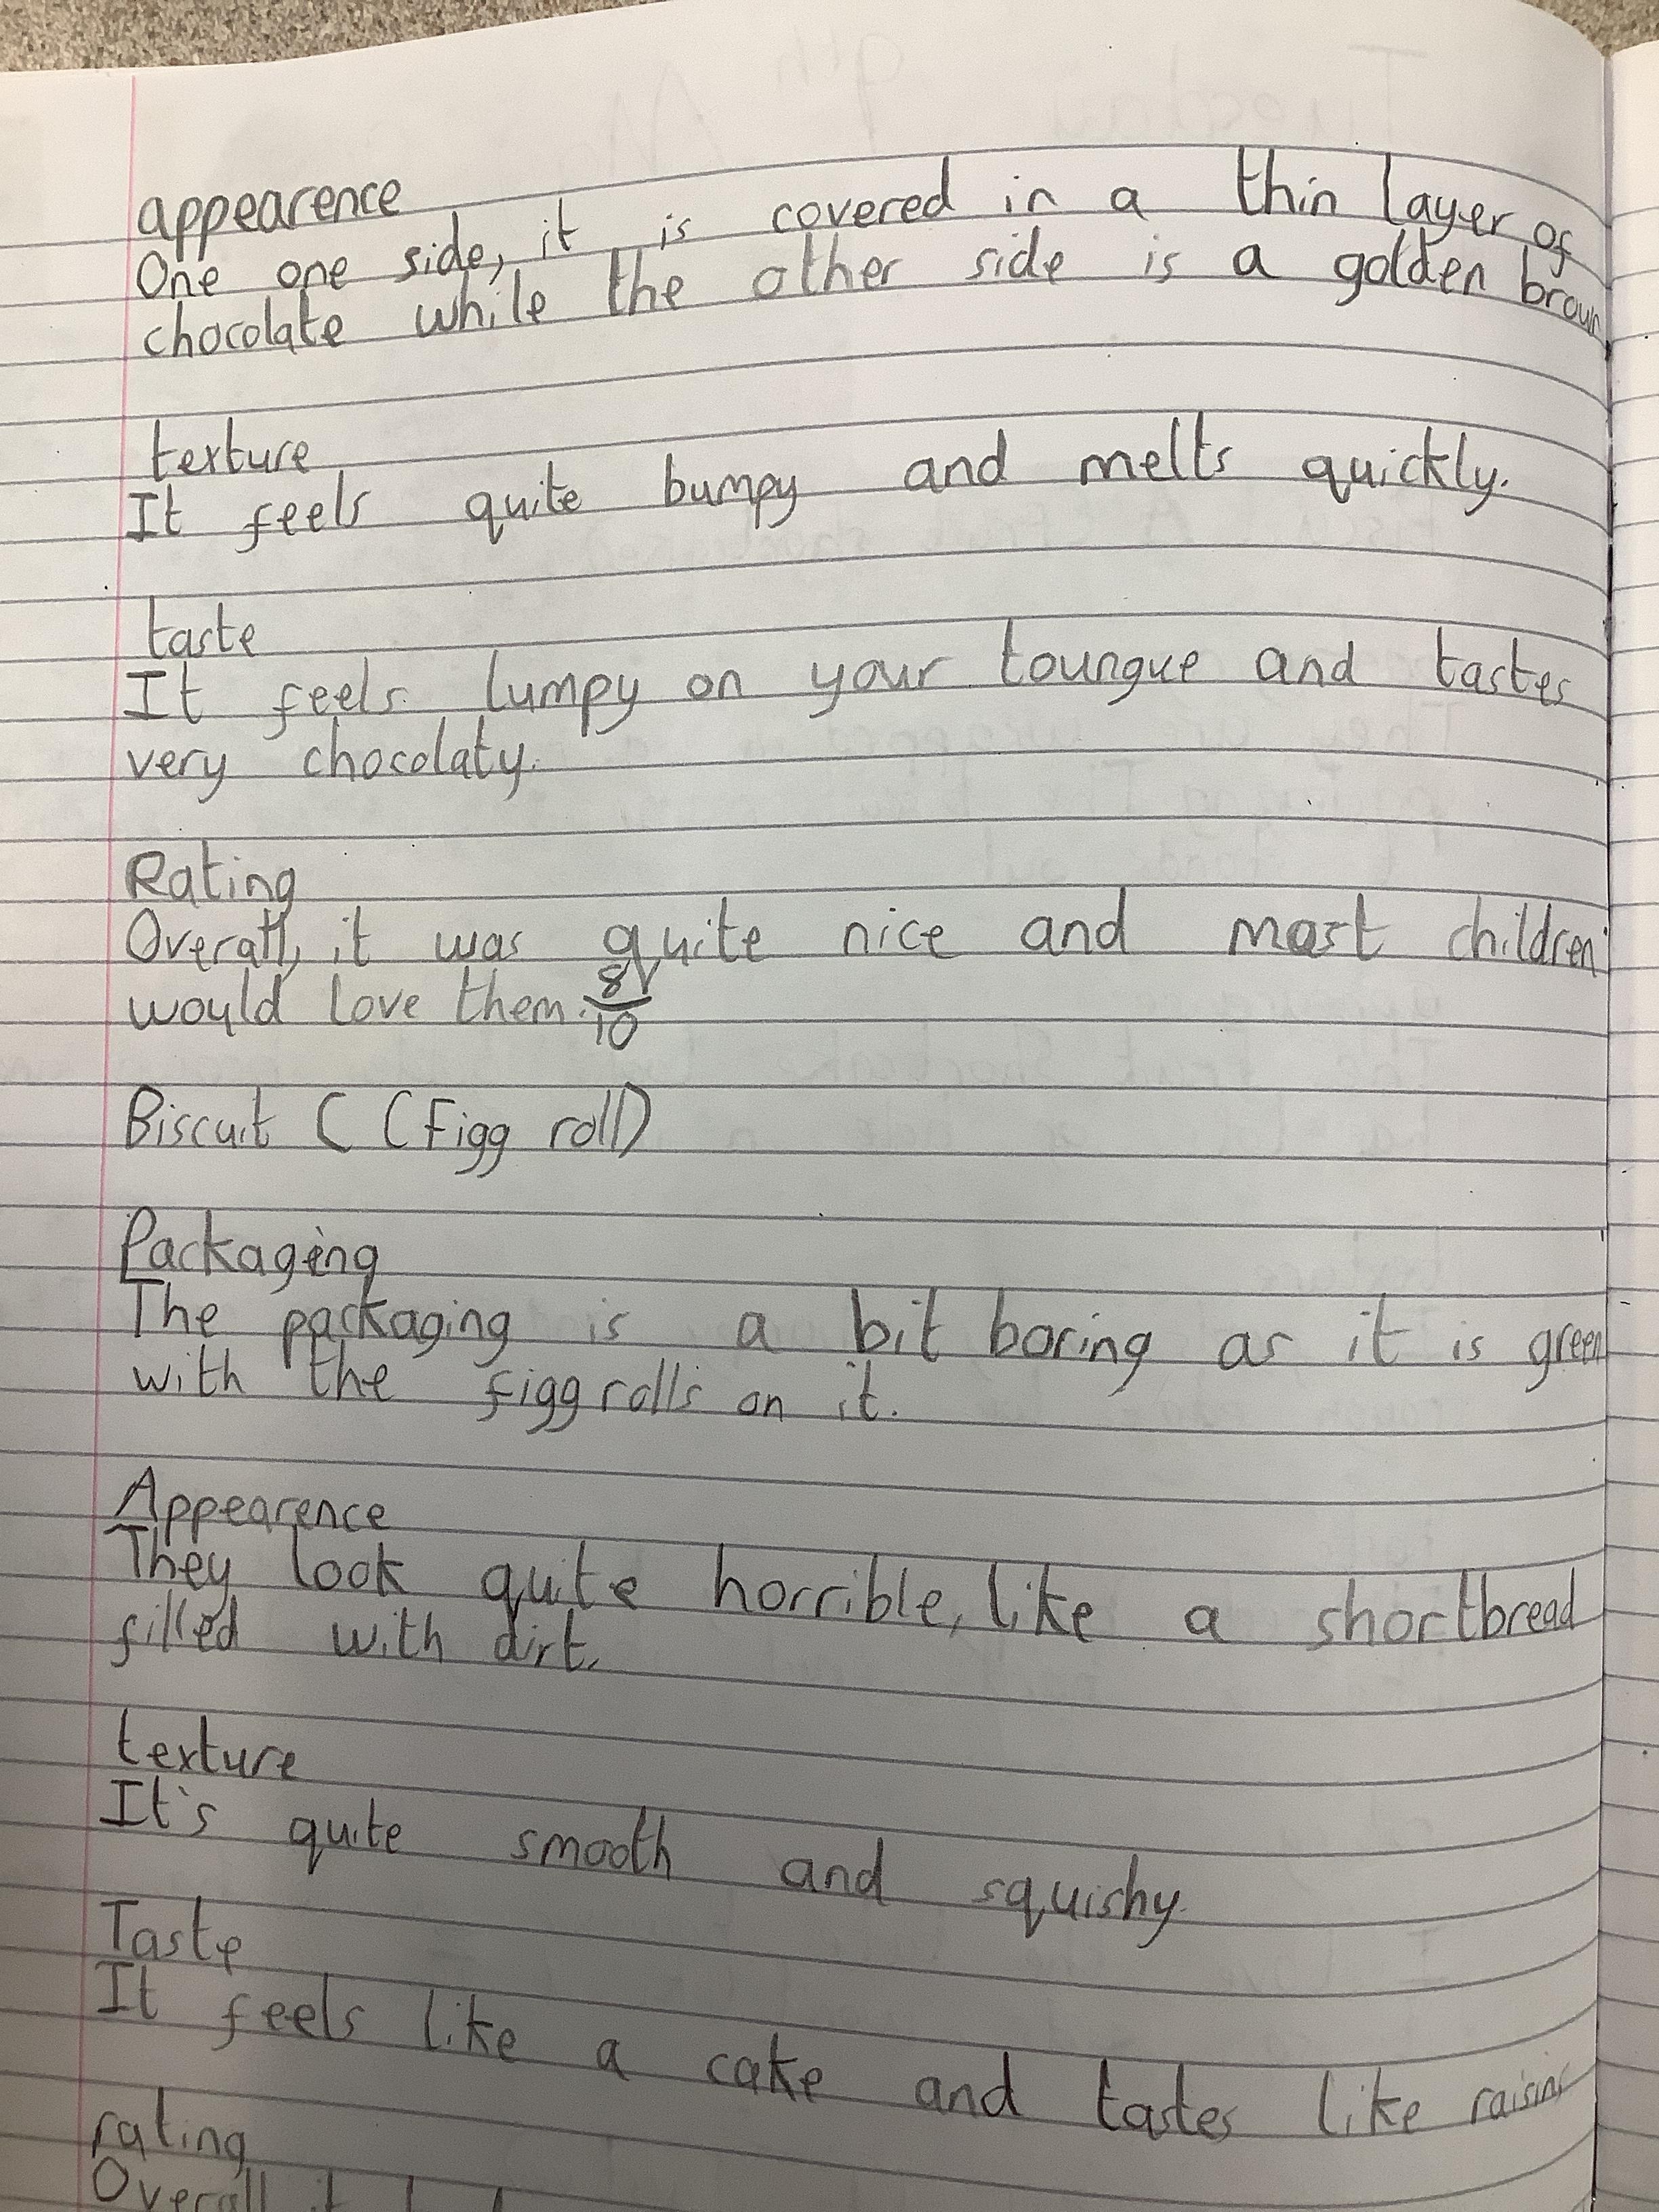 appearence
One one side, it is covered in a thin layer of
chocolate while the other side is a golden brown
texture
It feels quite bumpy and melts quickly.
taste
It feels lumpy on your toungue and tastes
very chocolaty.
Rating
Overall, it was quite nice and most children
would love them. 8/10
Biscuit C (Figg roll)
Packaging
The packaging is a bit boring as it is green
with the figg rolls on it.
Appearence
They look quite horrible, like a shortbread
filled with dirt.
texture
It's quite smooth and squishy.
Taste
It feels like a cake and tastes like raisins
rating
Overall it